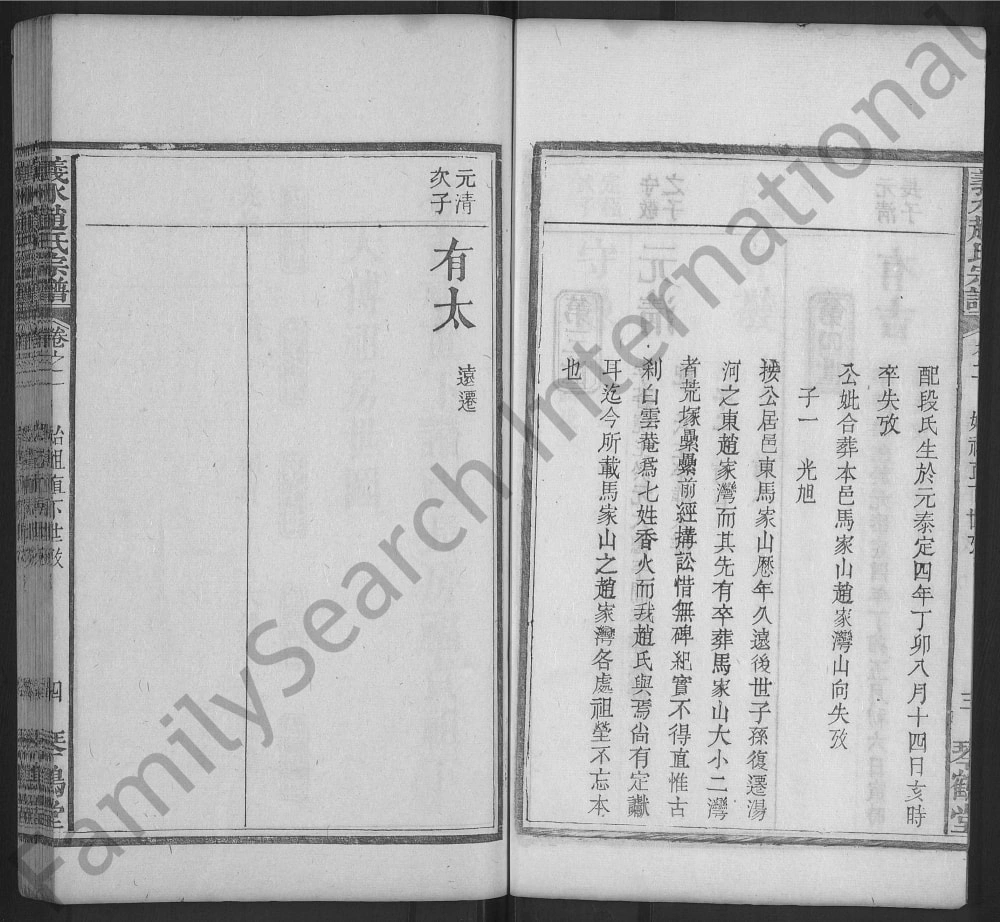 配段氏生於元泰定四年丁卯八月十四日亥時
卒失攷
公妣合葬本邑馬家山趙家灣山向失攷
子一　光旭
按公居邑東馬家山歷年久遠後世子孫復遷湯
河之東趙家灣而其先有卒葬馬家山大小二灣
者荒塚纍纍前經搆訟惜無碑紀實不得直惟古
刹白雲菴爲七姓香火而我趙氏與焉尙有定讞
耳迄今所載馬家山之趙家灣各處祖塋不忘本
也
三
琴鶴堂
元清
次子
有太
遠遷
義水趙氏宗譜
卷之二
始祖直下世攷
四
琴鶴堂
FamilySearch International